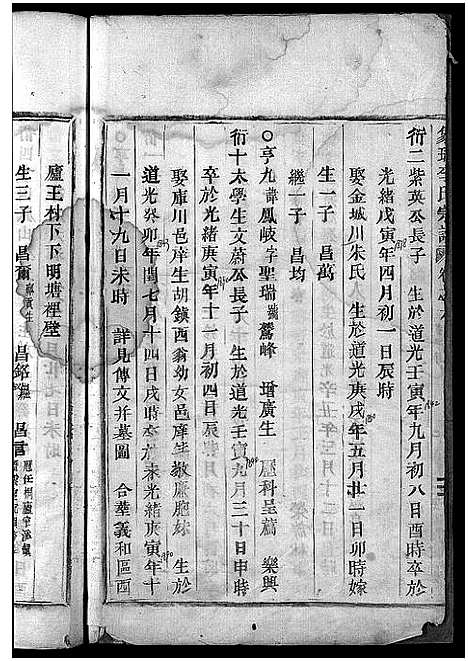 衍二紫英公長子 生於道光壬寅年九月初八日酉時卒於
光緒戊寅年四月初一日辰時
娶金城川朱氏 生於道光庚戌年五月廿一日卯時嫁
生一子 昌萬
繼一子 昌均
○亨九諱鳳岐字聖瑞號鷲峰 增廣生 歷科呈薦 樂興
衍十太學生文蔚公長子 生於道光壬寅九月三十日申時
卒於光緒庚寅年十一月初四日辰
娶庫川邑庠生胡鎮西翁幼女邑庠生敬廉胞妹 生於
道光癸卯年閏七月十四日戌時卒於光緒庚寅年十
一月十九日未時 詳見傳文并墓圖 合葬義和區酉
廬王村下下明塘裡壁
生三子 昌爾 昌銘 昌言